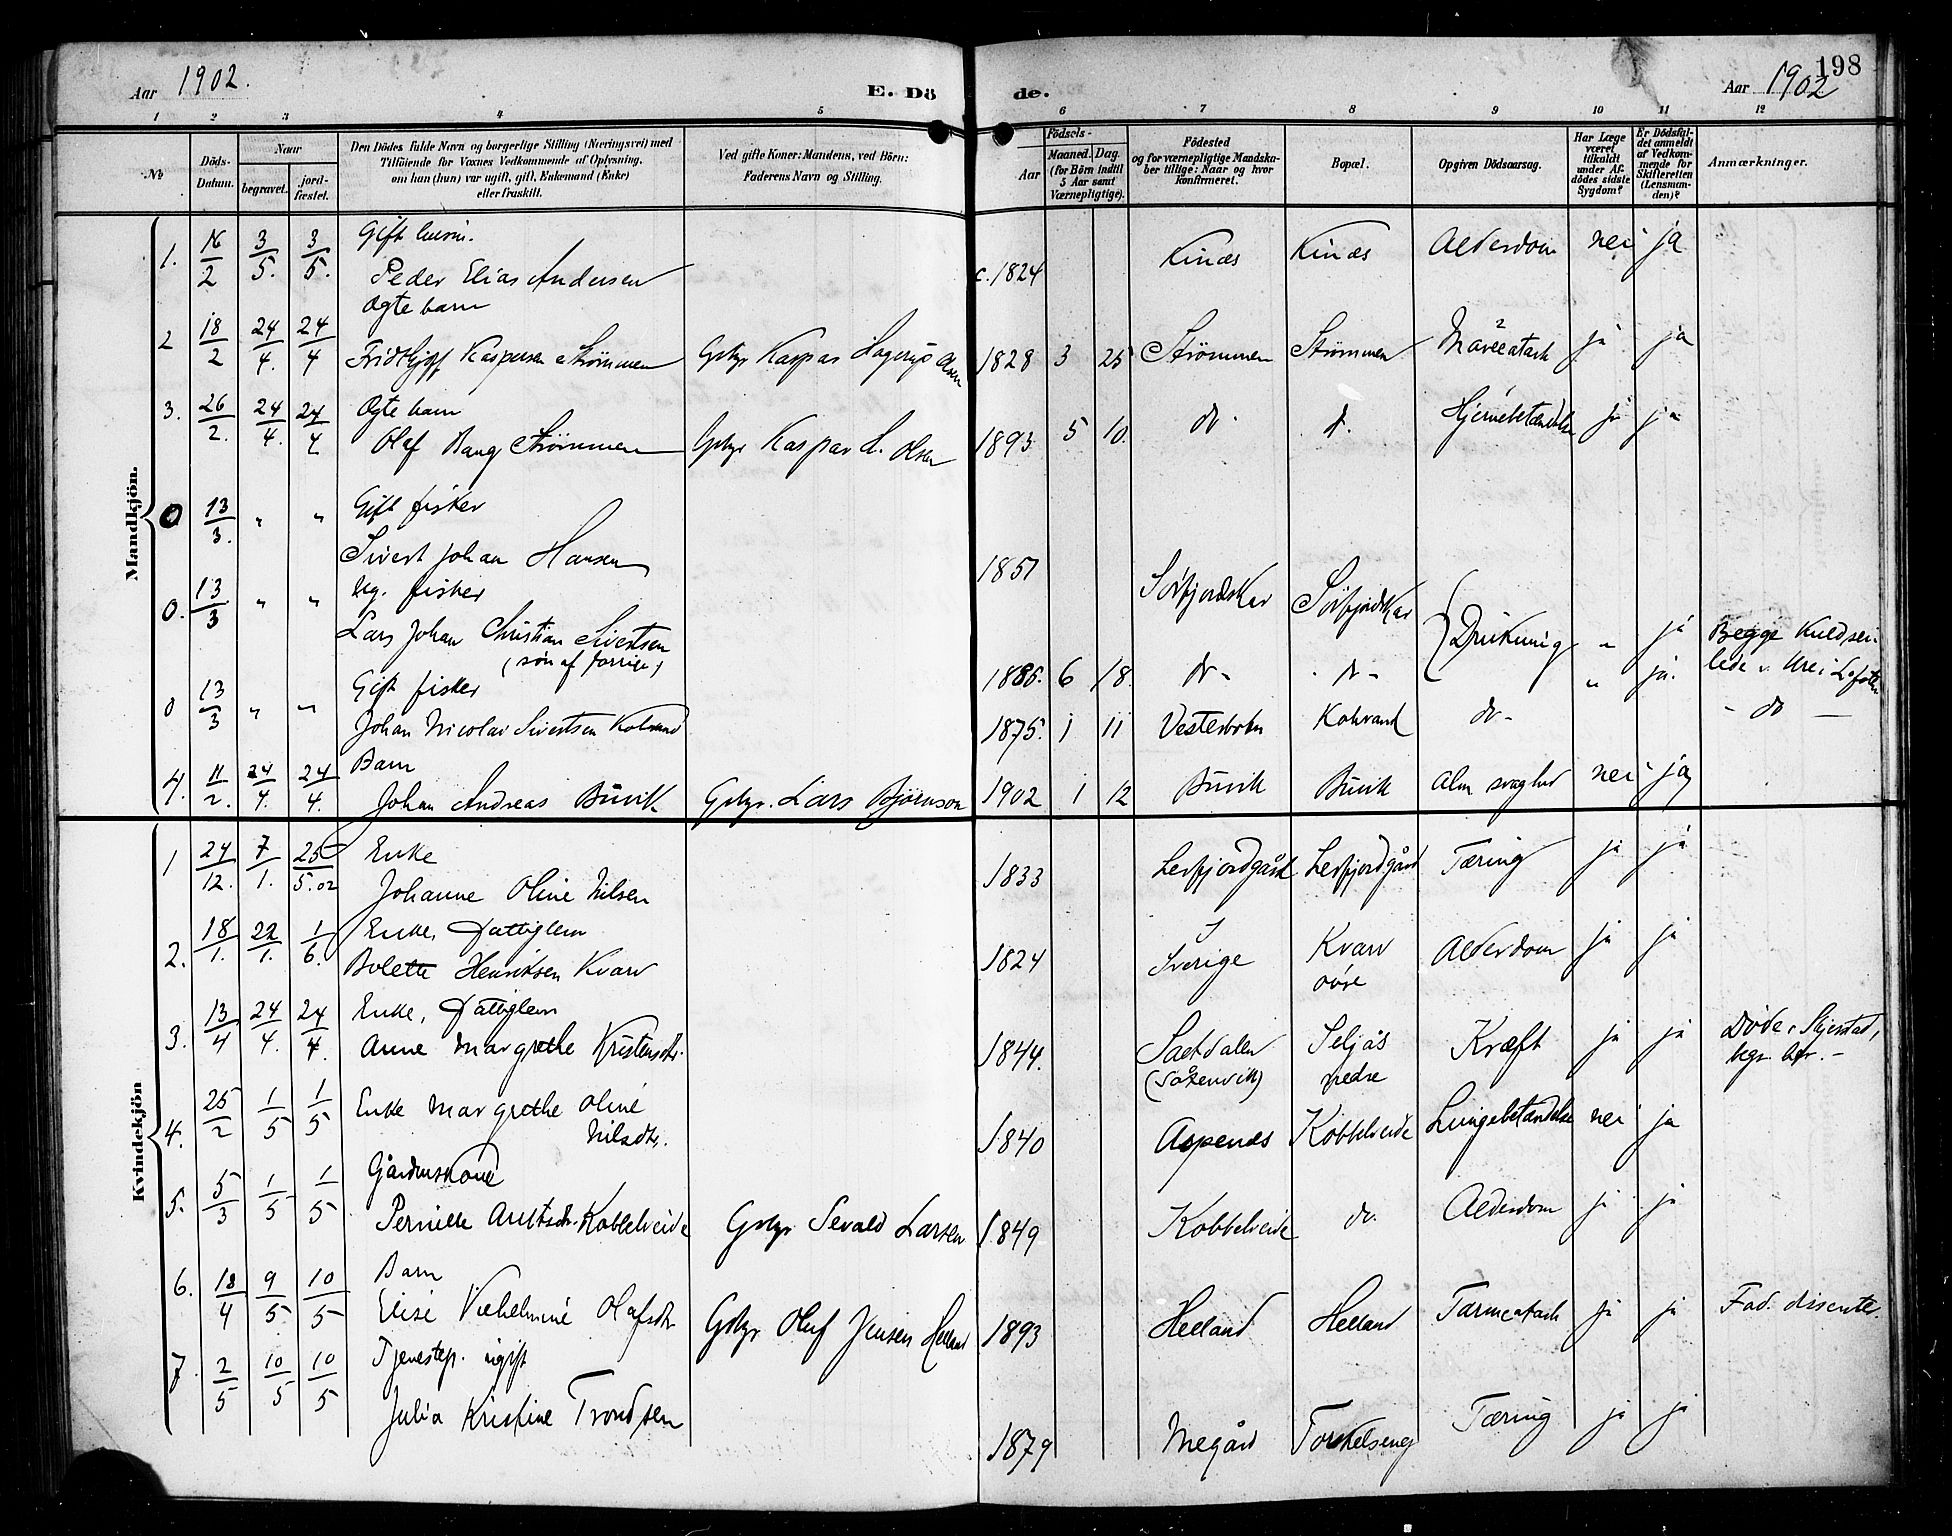 Aar 1902. E. Döde. Aar 1902 198
1 2 3 4 5 6 7 8 9 10 11 12
No
Döds-Datum.
Naar
begravet.
jord-fæstet.
Den Dödes fulde Navn og borgerlige Stilling (Næringsvei) med
Tilföiende for Voxnes Vedkommende af Oplysning,
om han (hun) var ugift, gift, Enkemand (Enke)
eller fraskilt.
Ved gifte Koner: Mandens, ved Börn:
Faderens Navn og Stilling.
Födsels-
Aar
Maaned. Dag.
(for Börn indtil
5 Aar samt
Værnepligtige).
Födested
og for værnepligtige Mandska-
ber tillige: Naar og hvor
konfirmeret.
Bopæl.
Opgiven Dödsaarsag.
Har Læge
været
tilkaldt
under Af-
dödes sidste
Sygdom?
Er Dödsfal-
det anmeldt
af Vedkom-
mende for
Skifteretten
(Lensman-
den)?
Anmærkninger.
Mandkjön.
1. 16/2 3/5. 3/5. Gift
Peder Elias Andersen c. 1824 Kinæs Kinæs Alderdom nei ja
2 18/2 24/4. 24/4 Ægte barn
Fridthjof Kaspersen Strømmen Gbr Kaspar Hagerup Olsen 1828 3 25 Strømmen Strømmen ja ja
3. 26/2. 24/4. 24/4 Ægte barn
Olaf Bang Strømmen Gbr Kaspar H. Olsen 1893 5 10. do. d. Hjernebetændelse ja ja
0 13/3. " " Gift fisker
Sivert Johan Hansen 1851 Sørfjordskar Sørfjordskar Drukning " ja Begge kuldsei-
0. 13/3 " " Ug. fisker
Lars Johan Christian Sivertsen
(søn af forrige) 1886. 6 18. do - do - " ja. lede v. Ure i Lofoten
0 13/3 " " Gift fisker
Johan Nicolai Sivertsen 1875. 1 11 Vesterbotn do - - do -
4. 11/2. 24/4. 24/4. Barn
Johan Andreas Buvik Gbr. Lars Bjørnson 1902 1 12 Buvik Buvik Alm svaghed nei ja
Kvindekjön
1 24/12. 7/1. 25/5.02 Enke
Johanne Oline Nilsen 1833 Leifjordgård Leifjordgård Tæring ja ja
2. 18/1. 22/1. 1/6. Enke, fattiglem
Bolette Henriksen Kvarv 1824 Sverige Kvarv
øvre Alderdom ja ja
3. 13/4 24/4. 24/4. Enke, fattiglem
Anne Margrethe Kristensdtr. 1844. Saetdalen
Seljås
nedre Kræft ja ja Døde i Skjerstad,
begr. her. -
4. 25/2 1/5 1/5 Enke Margrethe Oline
Nilsdtr. 1840 Aspenes Kobbelveide Lungebetændelse nei ja
5. 5/3 1/5 1/5 Gårdmskone
Pernille Arntsdtr. Kobbelveide Gbr Sevald Larsen 1849 Kobbelveide do. Alderdom ja ja
6. 18/4 9/5 10/5 Barn
Elise Vilhelmine Olafsdtr Gbr Oluf Jensen Helland 1893 Helland Helland Tarmcatarh ja ja Fad. dissenter.
7. 2/5 10/5 10/5 Tjenestep. ugift
Julia Kristine Trondsen 1879 Megård Torkelseng Tæring ja ja